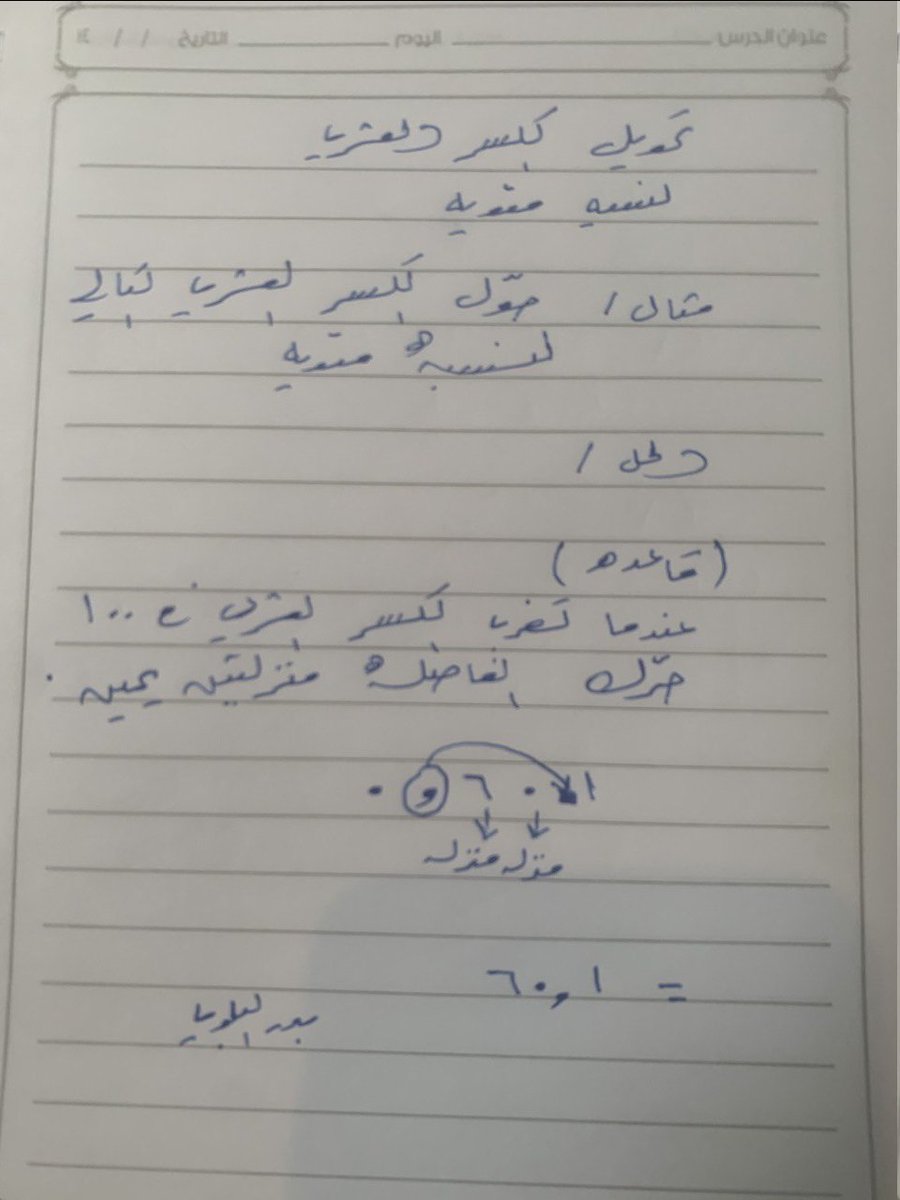 عنوان الدرس: اليوم التاريخ / / ١٤
تحويل الكسر العشري
لنسبه مئويه
مثال / حوّل الكسر العشري التالي
لنسبة مئويه
الحل /
(قاعده)
عندما تضرب الكسر العشري في ١٠٠
حرّك الفاصلة منزلتين يمين .
٠ و ٦ ٠ ١
منزله منزله
= ٦٠,١
بدر البلوي